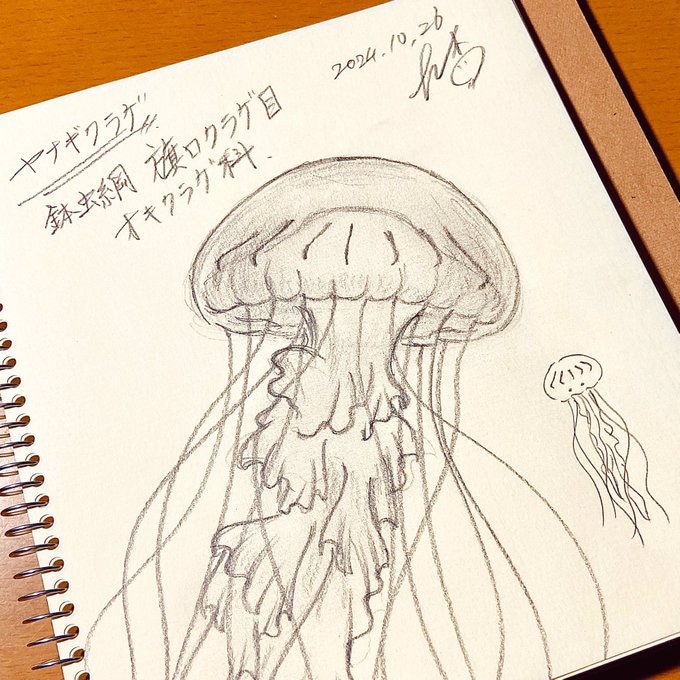 2024.10.26
ヤナギクラゲ
鉢虫綱 旗口クラゲ目
オキクラゲ科.